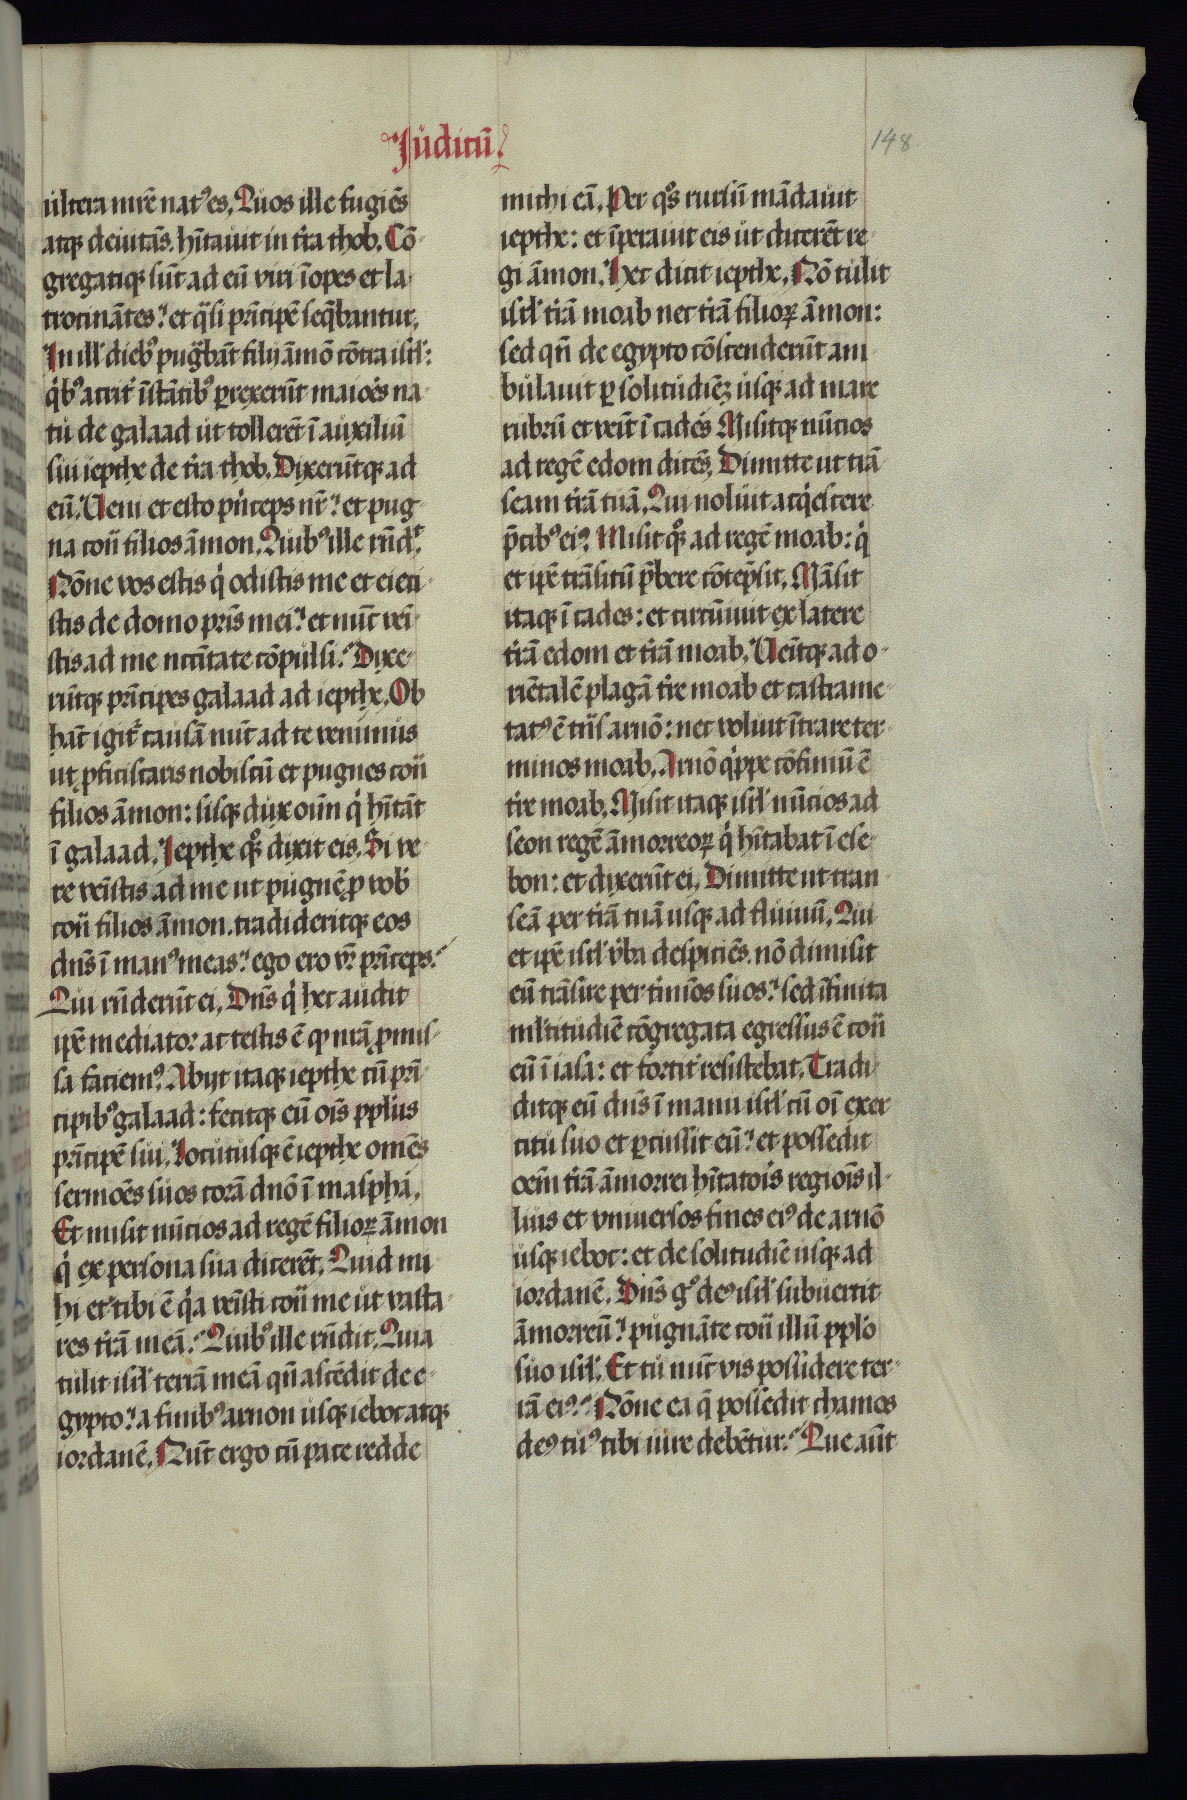 Iudicū.
148
ultera mrē natꝰ es. Quos ille fugiēs
atqꝫ deuitās. hītauit in t̄ra thob. Cō
gregatiqꝫ sūt ad eū viri īopes et la
trocinātes: et q̄si prīcipē seq̄bantur.
In ill̄ diebꝰ pugͣbāt filij āmō cōtra isrl̄:
qͥbꝰ acrit̄ īstātibꝰ ꝑrexerūt maiōes na
tu de galaad ut tollerēt ī auxiliū
sui iepthe de t̄ra thob. Dixerūtqꝫ ad
eū. Veni et esto prīceps nr̄: et pug
na cōtͣ filios āmon. Quibꝰ ille rn̄dͭ.
Nōne vos estis qͥ odistis me et eieci
stis de domo pr̄is mei: et nūc vēi
stis ad me nccītate cōpulsi. Dixe
rūtqꝫ prīcipes galaad ad iepthe. Ob
hāc igit̄ causā nūc ad te venimus
ut ꝓficiscaris nobiscū et pugnes cōtͣ
filios āmon: sisqꝫ dux oīm qͥ hītāt
ī galaad. Iepthe qͦqꝫ dixit eis. Si ve
re vēistis ad me ut pugnē ꝓ vob̄
cōtͣ filios āmon. tradideritqꝫ eos
dn̄s ī manꝰ meas: ego ero vr̄ prīceps.
Qui rn̄derūt ei. Dn̄s qͥ hec audit
ip̄e mediator ac testis ē ꝙ nrā ꝓmis
sa faciemꝰ. Abijt itaqꝫ iepthe cū prī
cipibꝰ galaad: fecitqꝫ eū oīs pplūs
prīcipē sui. Locutusqꝫ ē iepthe omēs
sermōes suos corā dnō ī maspha.
Et misit nūcios ad regē filioꝝ āmon
qͥ ex persona sua dicerēt. Quid mi
hi et tibi ē qͥa vēisti cōtͣ me ut vasta
res t̄rā meā. Quibꝰ ille rn̄dit. Quia
tulit isrl̄ terrā meā qn̄ ascēdit de e
gypto: a finibꝰ arnon usqꝫ ieboc atqꝫ
iordanē. Nūc ergo cū pace redde
michi eā. Per qͦs rursū mādauit
iepthe: et īperauit eis ut dicerēt re
gi āmon. Hec dicit iepthe. Nō tulit
isrl̄ t̄rā moab nec t̄rā filioꝝ āmon:
sed qn̄ de egypto cōscenderūt am
bulauit ꝑ solitudiēꝫ usqꝫ ad mare
rubrū et vēit ī cades Misitqꝫ nūcios
ad regē edom dicēs. Dimitte ut trā
seam t̄rā tuā. Qui noluit acqͥescere
p̄cibꝰ eiꝰ. Misit qͦqꝫ ad regē moab: qͥ
et ip̄e trāsitū p̄bere cōtēpsit. Māsit
itaqꝫ ī cades: et circūiuit ex latere
t̄rā edom et t̄rā moab. Veītqꝫ ad o
riētalē plagā t̄re moab et castrame
tatꝰ ē trn̄s arnō: nec voluit ītrare ter
minos moab. Arnō qͥppe cōfiniū ē
t̄re moab. Misit itaqꝫ isrl̄ nūcios ad
seon regē āmorreoꝝ qͥ hītabat ī ese
bon: et dixerūt ei. Dimitte ut tran
seā per t̄rā tuā usqꝫ ad fluuiū. Qui
et ip̄e isrl̄ v̄ba despiciēs. nō dimisit
eū trāsire per t̄mīos suos: sed īfinita
ml̄titudīe cōgregata egressus ē cōtͣ
eū ī iasa: et fortit̄ resistebat. Tradi
ditqꝫ eū dn̄s ī manu isrl̄ cū oī exer
citu suo et ꝑcussit eū: et possedit
oēm t̄rā āmorrei hītatoīs regiōis il
lius et vniuersos fines eiꝰ de arnō
usqꝫ ieboc: et de solitudīe usqꝫ ad
iordanē. Dn̄s gͦ deꝰ isrl̄ subuertit
āmorreū: pugnāte cōtͣ illū pplō
suo isrl̄. Et tu nūc vis possidere ter
rā eiꝰ. Nōne ea q̄ possedit chamos
deꝰ tuꝰ tibi iure debētur. Que aūt